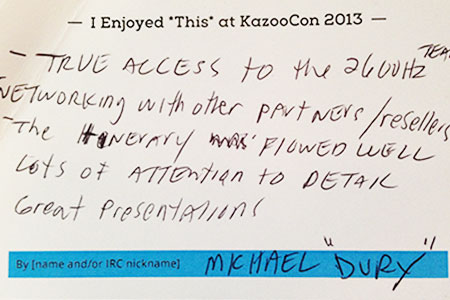 — I Enjoyed *This* at KazooCon 2013 —
- TRUE ACCESS to the 2600Hz TEAM
NETWORKING with other partners/resellers
- The Itinerary was FLOWED WELL
Lots of ATTENTION to DETAIL
Great Presentations
By [name and/or IRC nickname] MICHAEL "DURY"